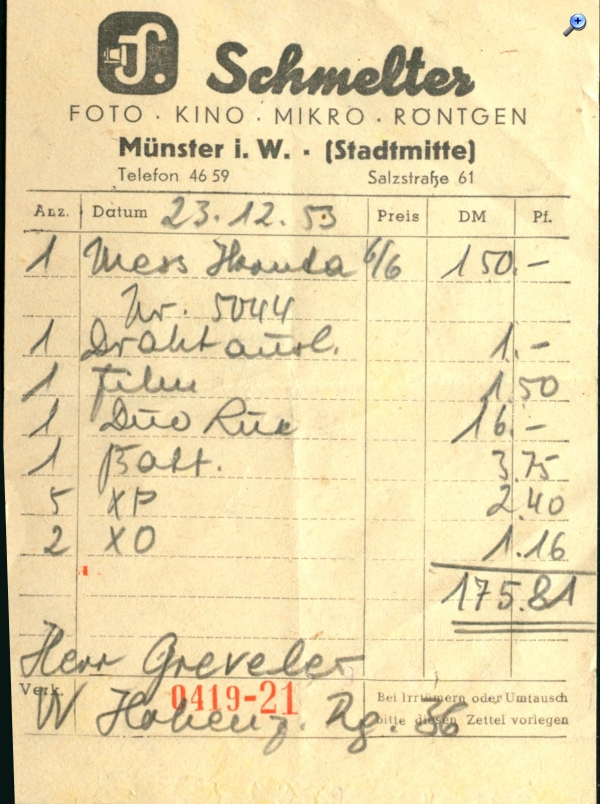 S.
Schmelter
FOTO · KINO · MIKRO · RÖNTGEN
Münster i. W. · (Stadtmitte)
Telefon 46 59 Salzstraße 61
Anz. Datum 23.12.53 Preis DM Pf.
1 Mess Ikonta 6/6 150.-
Nr. 5044
1 Drahtausl. 1.-
1 Film 1.50
1 Duo 16.-
1 Batt. 3.75
5 XP 2.40
2 XO 1.16
175.81
Herr Greveler
Verk. 0419-21 Bei Irrtümern oder Umtausch
W Hohenz. Rg. 36 bitte diesen Zettel vorlegen